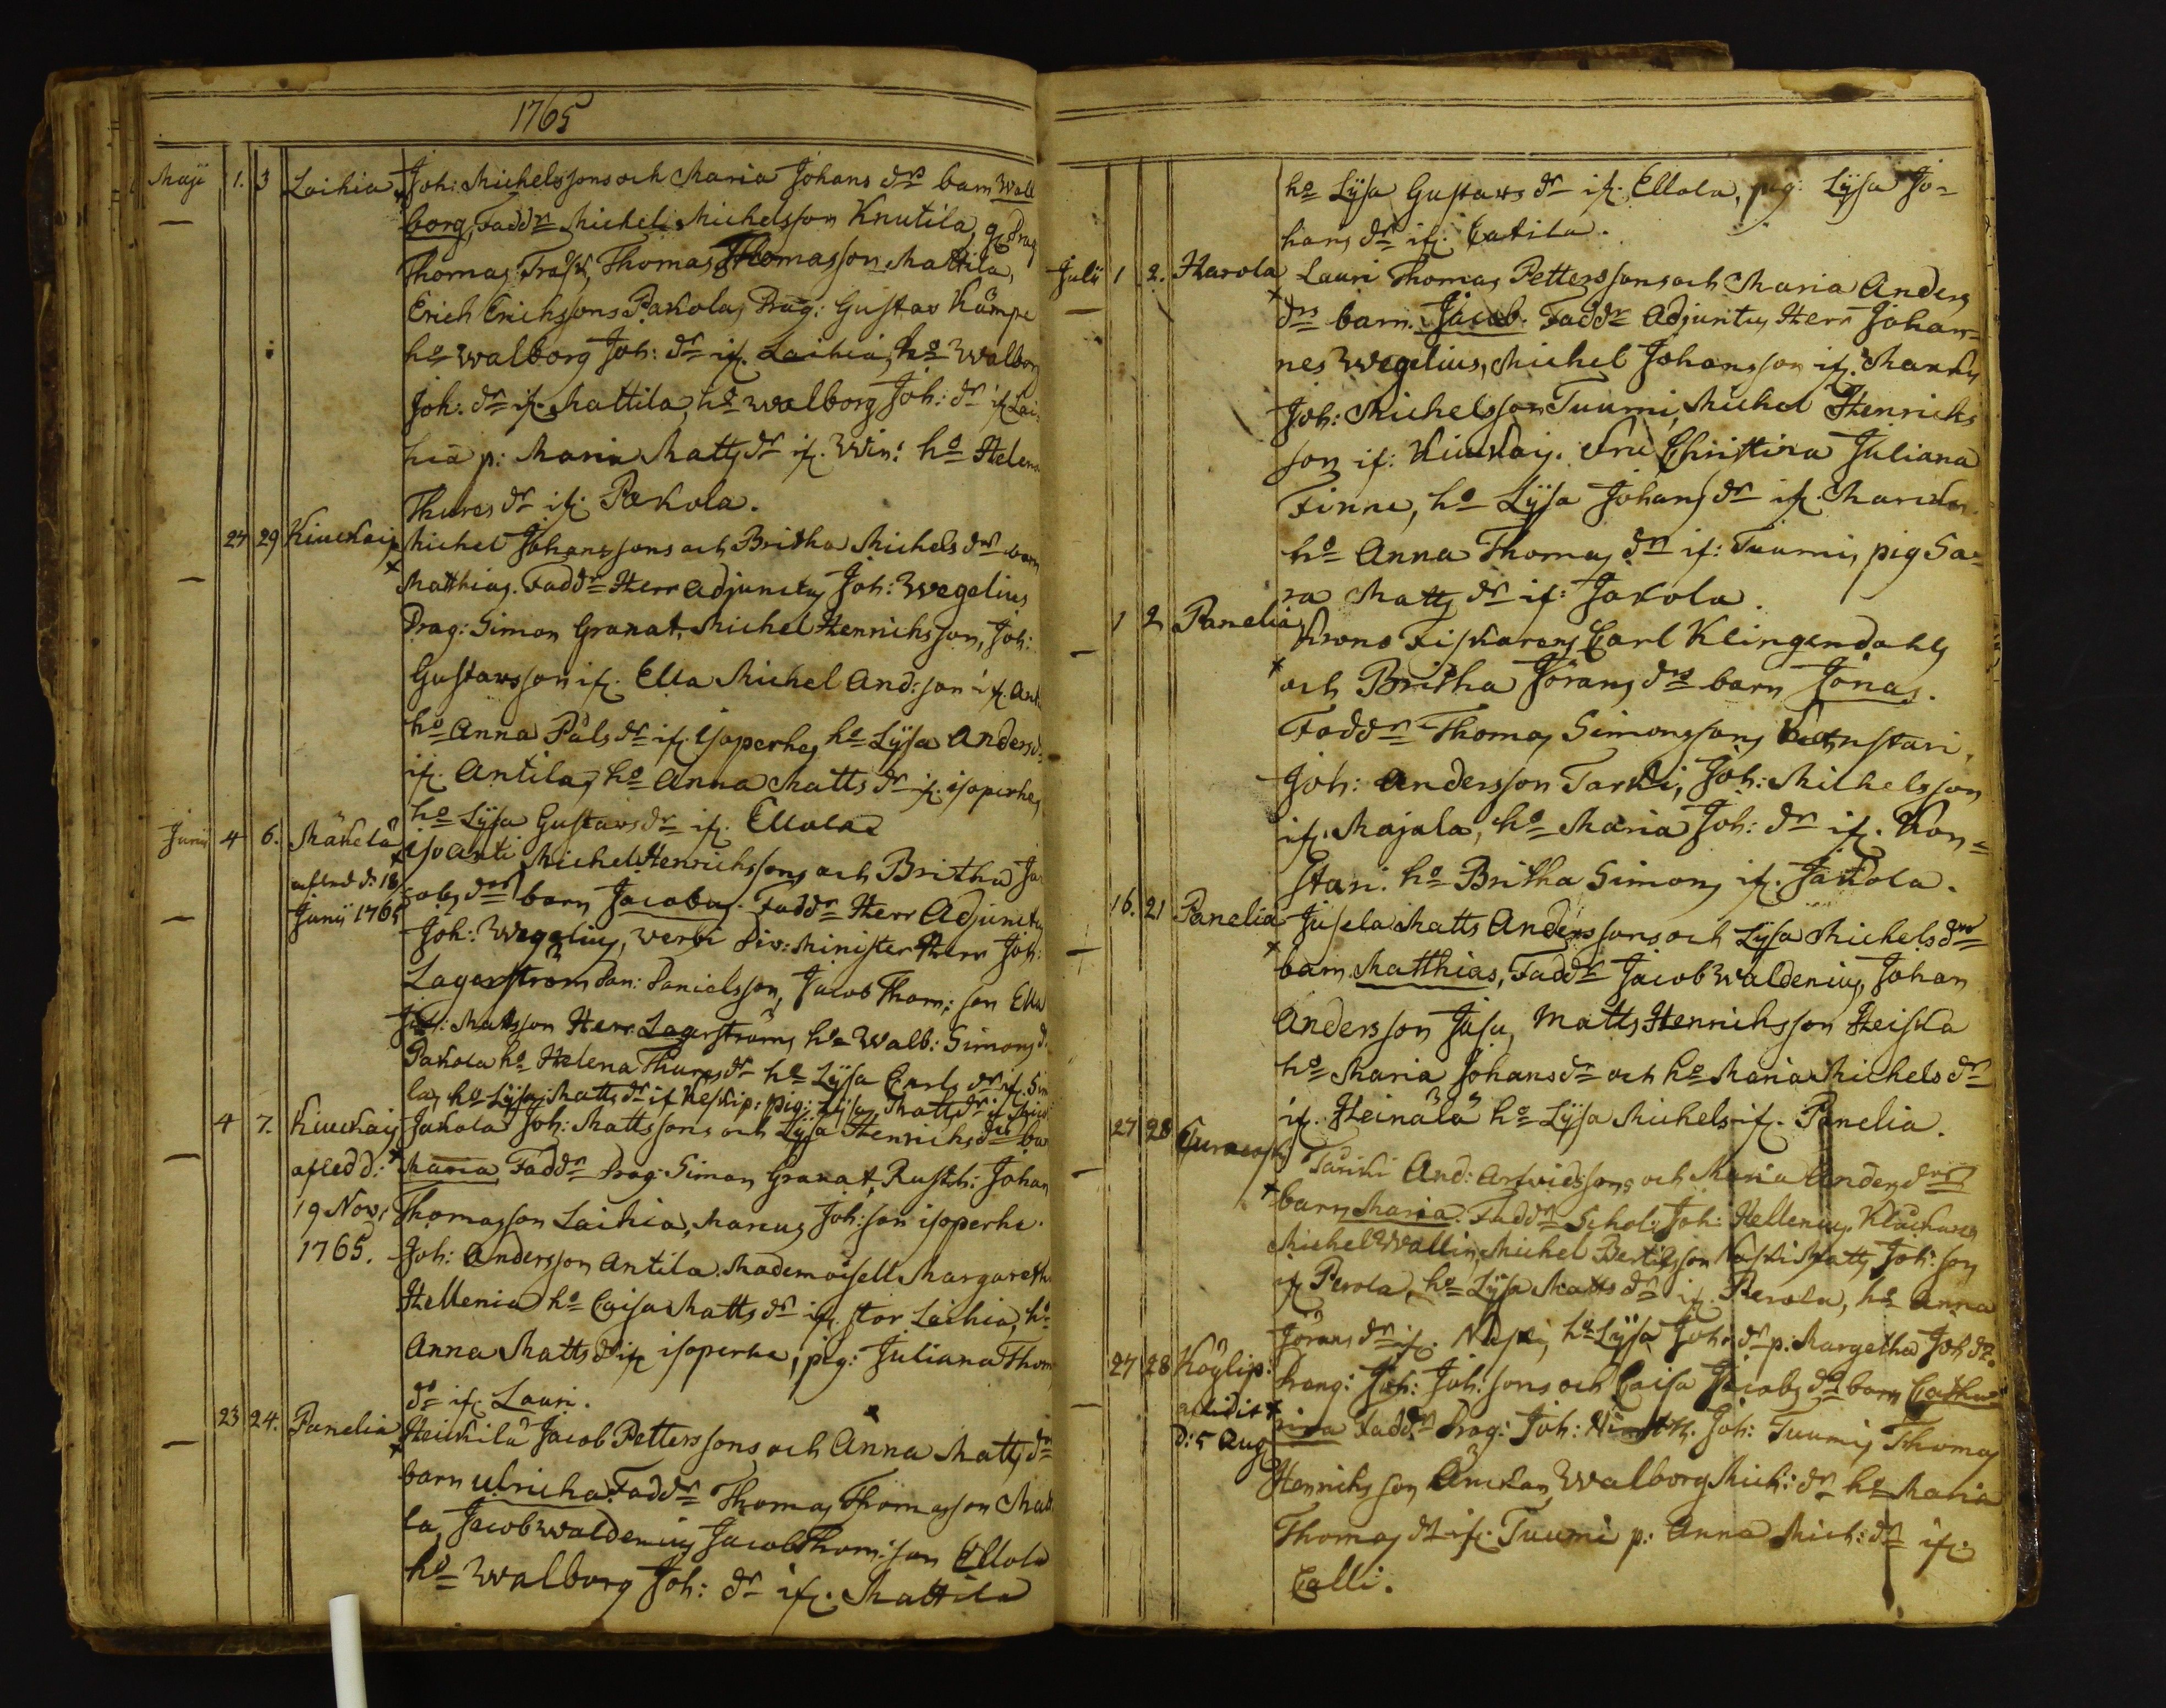 1765
Maji 1. 3 Laihia Joh: Michelssons och Maria Johans drs barn Wal
borg, Faddr Michel Michelsson Knutila, g. Drag
Thomas Fräsk, Thomas Thomasson Mattila,
Erich Erichssons Pakola, Drag: Gustav Kämpe
ho Walborg Joh: dr if. Laihia, ho Walborg
Joh: dr if. Mattila, ho Walborg Joh: dr if Lai-
hia p: Maria Matts dr if. Win: ho Helena
Thures dr if. Pakola.
27 29 Kiuckais Michel Johanssons och Britha Michels drs barn
Matthias. Faddr Herr Adjunctus Joh: Wegelius
Drag: Simon Granat, Michel Henrichsson, Joh:
Gustavsson if. Ella Michel And: son if. Ant
ho Anna Påls dr if. isoperhe, ho Lysa Andersd:
if. Antila, ho Anna Matts dr if. isoperhe,
ho Lysa Gustavs dr if. Ellola
Junii 4 6. Mäkelä isoanti Michel Henrichssons och Britha Ja
afled d: 18 cobs drs barn Jacobus. Faddr Herr Adjunctus
Junii 1765 Joh: Wegelius, Verbi Div: Minister Herr Joh:
Lagerström Dan: Danielsson, Jacob Thom: son Ella
Joh: Mattsson Herr Lagerströms ho Walb: Simons d.
Pakola ho Helena Thures dr ho Lysa Carls dr if. Sim
la, ho Lysa Matts dr if Keskip: pig: Lysa Matts dr if
4 7. Kiuckais Jakola Joh: Mattssons och Lysa Henrichs drs bar
afled d: Maria Faddr Drag Simon Granat, Rusth: Johan
19 Nov: Thomasson Laihia, Marcus Joh: son isoperhe.
1765. Joh: Andersson Antila. Mademoisell Margaretha
Hellenia ho Caisa Matts dr if. stor Laihia, ho
Anna Matts dr if isoperhe, pig: Juliana Thom
dr if. Lauri.
23 24. Panelia Heickilä Jacob Petterssons och Anna Matts drs
barn Ulricha Faddr Thomas Thomasson Matti
la, Jacob Waldenius Jacob Thom: son Ellola
ho Walborg Joh: dr if. Mattila
ho Lysa Gustavs dr if. Ellola, pig: Lysa Jo-
hans dr if. Eatila.
Julii 1 2. Harola Lauri Thomas Petterssons och Maria Anders
drs barn. Jacob. Faddr Adjunctus Herr Johan-
nes Wegelius, Michel Johansson if. Marku
Joh: Michelsson Tuumi, Michel Henrichs
son if: Kiuckais. Fru Christina Juliana
Finne, ho Lysa Johans dr if. Marcku.
ho Anna Thomas dr if: Tuumi, pig Sa-
ra Matts dr if: Jakola.
1 2 Panelia Krono Fiskarens Carl Klingendahls
och Britha Jörans drs barn Jonas.
Faddr Thomas Simonssons Konstari.
Joh: Andersson Tarki, Joh: Michelsson
if. Majala, ho Maria Joh: dr if. Kon-
stari. ho Britha Simons if. Jakola.
16. 21 Panelia Jusela Matts Anderssons och Lysa Michels drs
barn Matthias, Faddr Jacob Waldenius, Johan
Andersson Jusu, Matts Henrichsson Heiska
ho Maria Johansdr och ho Maria Michels dr
if. Heinälä ho Lysa Michels if. Panelia.
27 28 Euracoski Täuriki And: Arfvidssons och Maria Anders drs
barn Maria. Faddr Schol: Joh: Hellenius. Kläckaren
Michel Wallin, Michel Bertilsson Naski Matts Joh: son
if Perola, ho Lysa Matts dr if. Perola, ho Anna
Jörans dr if. Naski, ho Lysa Joh: dr p. Margetha Joh dr.
27 28 Köylip: Drang: Joh: Joh: sons och Caisa Jacobs drs barn Catha
afledit rina Faddr Drag: Joh: Joh: Tuumi, Thomas
D: 5 Aug Henrichsson Anckan Walborg Mich: dr ho Maria
Thomas dr if. Tuumi p: Anna Mich: dr if.
Calli.